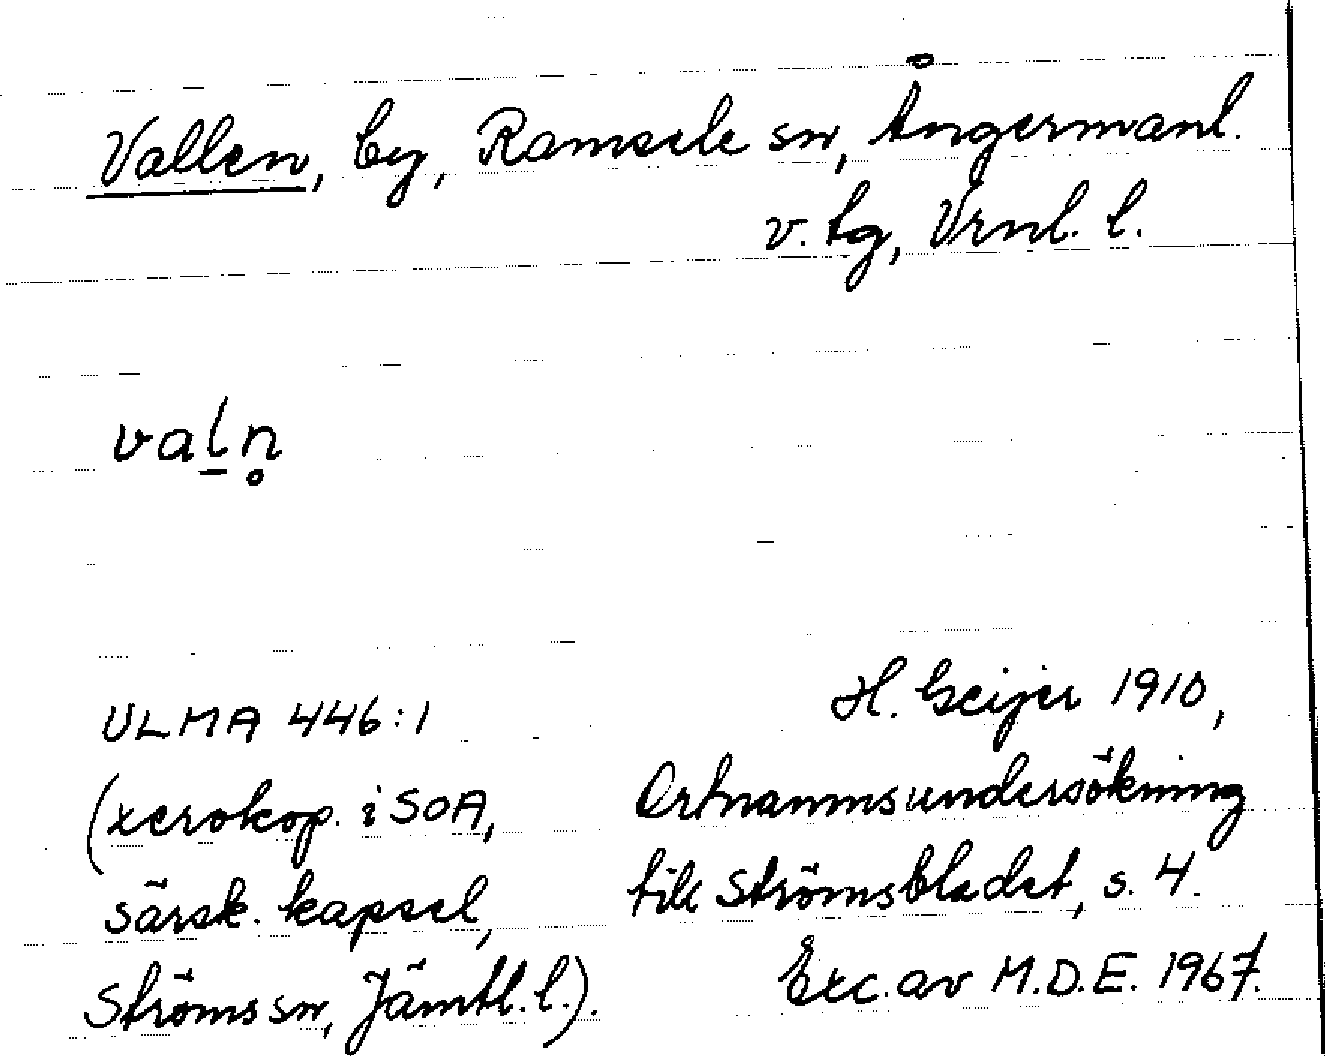 Vallen, by, Ramsele sn, Ångermanl.
v. tg, Vrnl. l.
val̲n̥
ULMA 446:1
(xerokop. i SOA,
särsk. kapsel,
Ströms sn, Jämtl. l.).
H. Geijer 1910,
Ortnamnsundersökning
till Strömsbladet, s. 4.
Exc. av M.D.E. 1967.